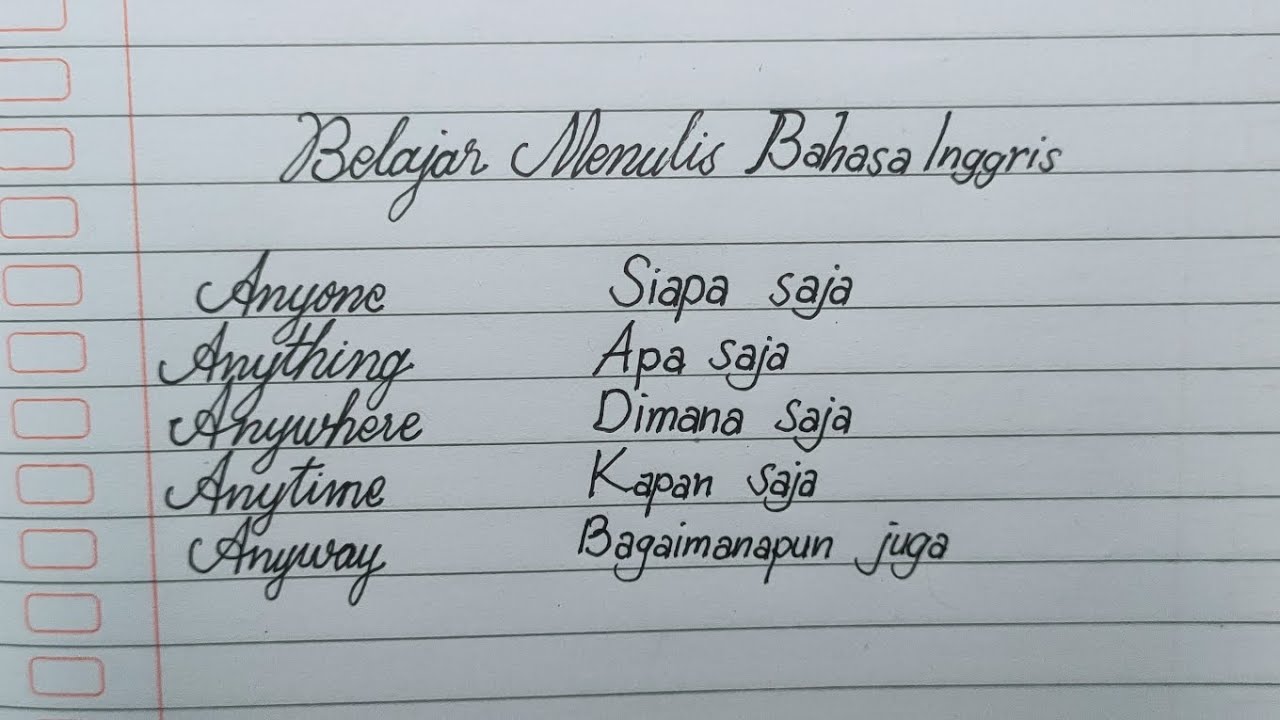 Belajar Menulis Bahasa Inggris
Anyone Siapa saja
Anything Apa saja
Anywhere Dimana saja
Anytime Kapan saja
Anyway Bagaimanapun juga